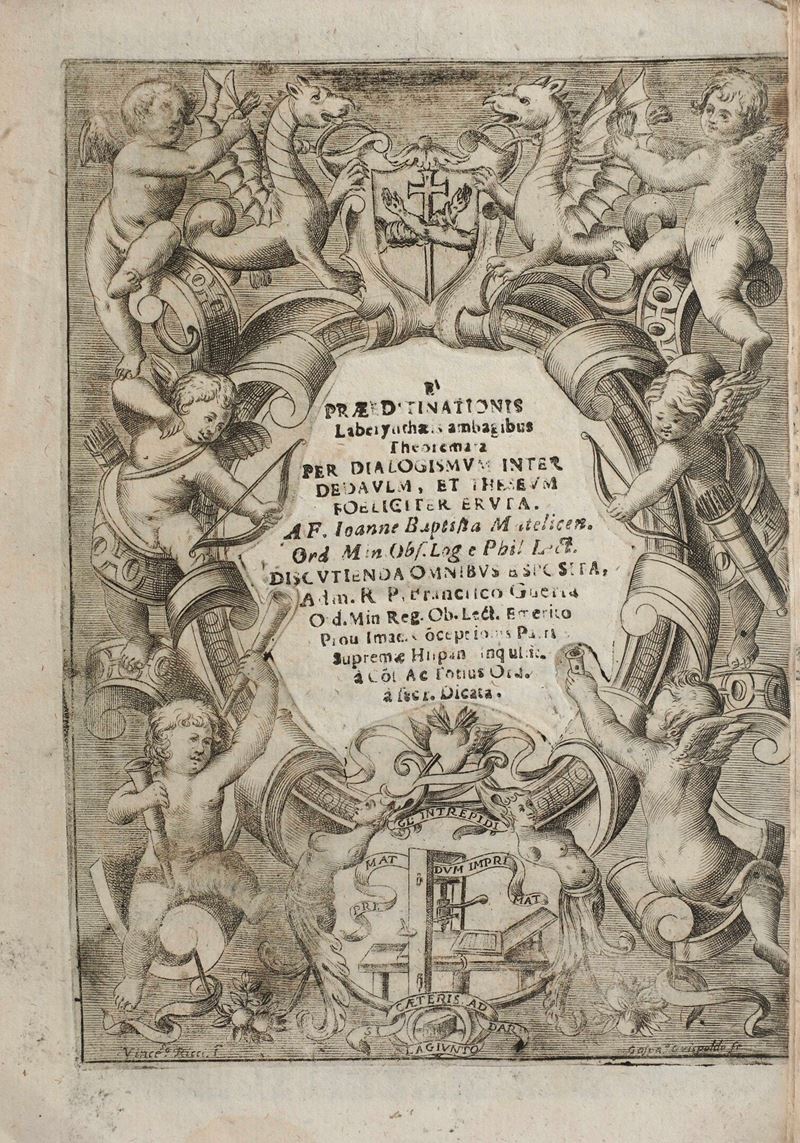 PRÆDTINATIONIS
Laberynthæis ambagibus
Theoremata
PER DIALOGISMVM INTER
DEDAVLM, ET THESEVM
FOELICITER ERVTA.
A F. Ioanne Baptista Matelicen.
Ord Min Obs. Log e Phil Lect.
DISCVTIENDA OMNIBVS ESPOSITA,
Adm. R P. Francisco Guerra
Ord. Min Reg. Ob. Lect. Emerito
Supremæ Hispan inquisit.
à Cō Ac Totius Ord.
à secr. Dicata.
GL INTREPIDI
PRE MAT DVM IMPRI MAT
CÆTERIS AD
SI DAR
LAGIVNTO
Vinc. Ricci. f